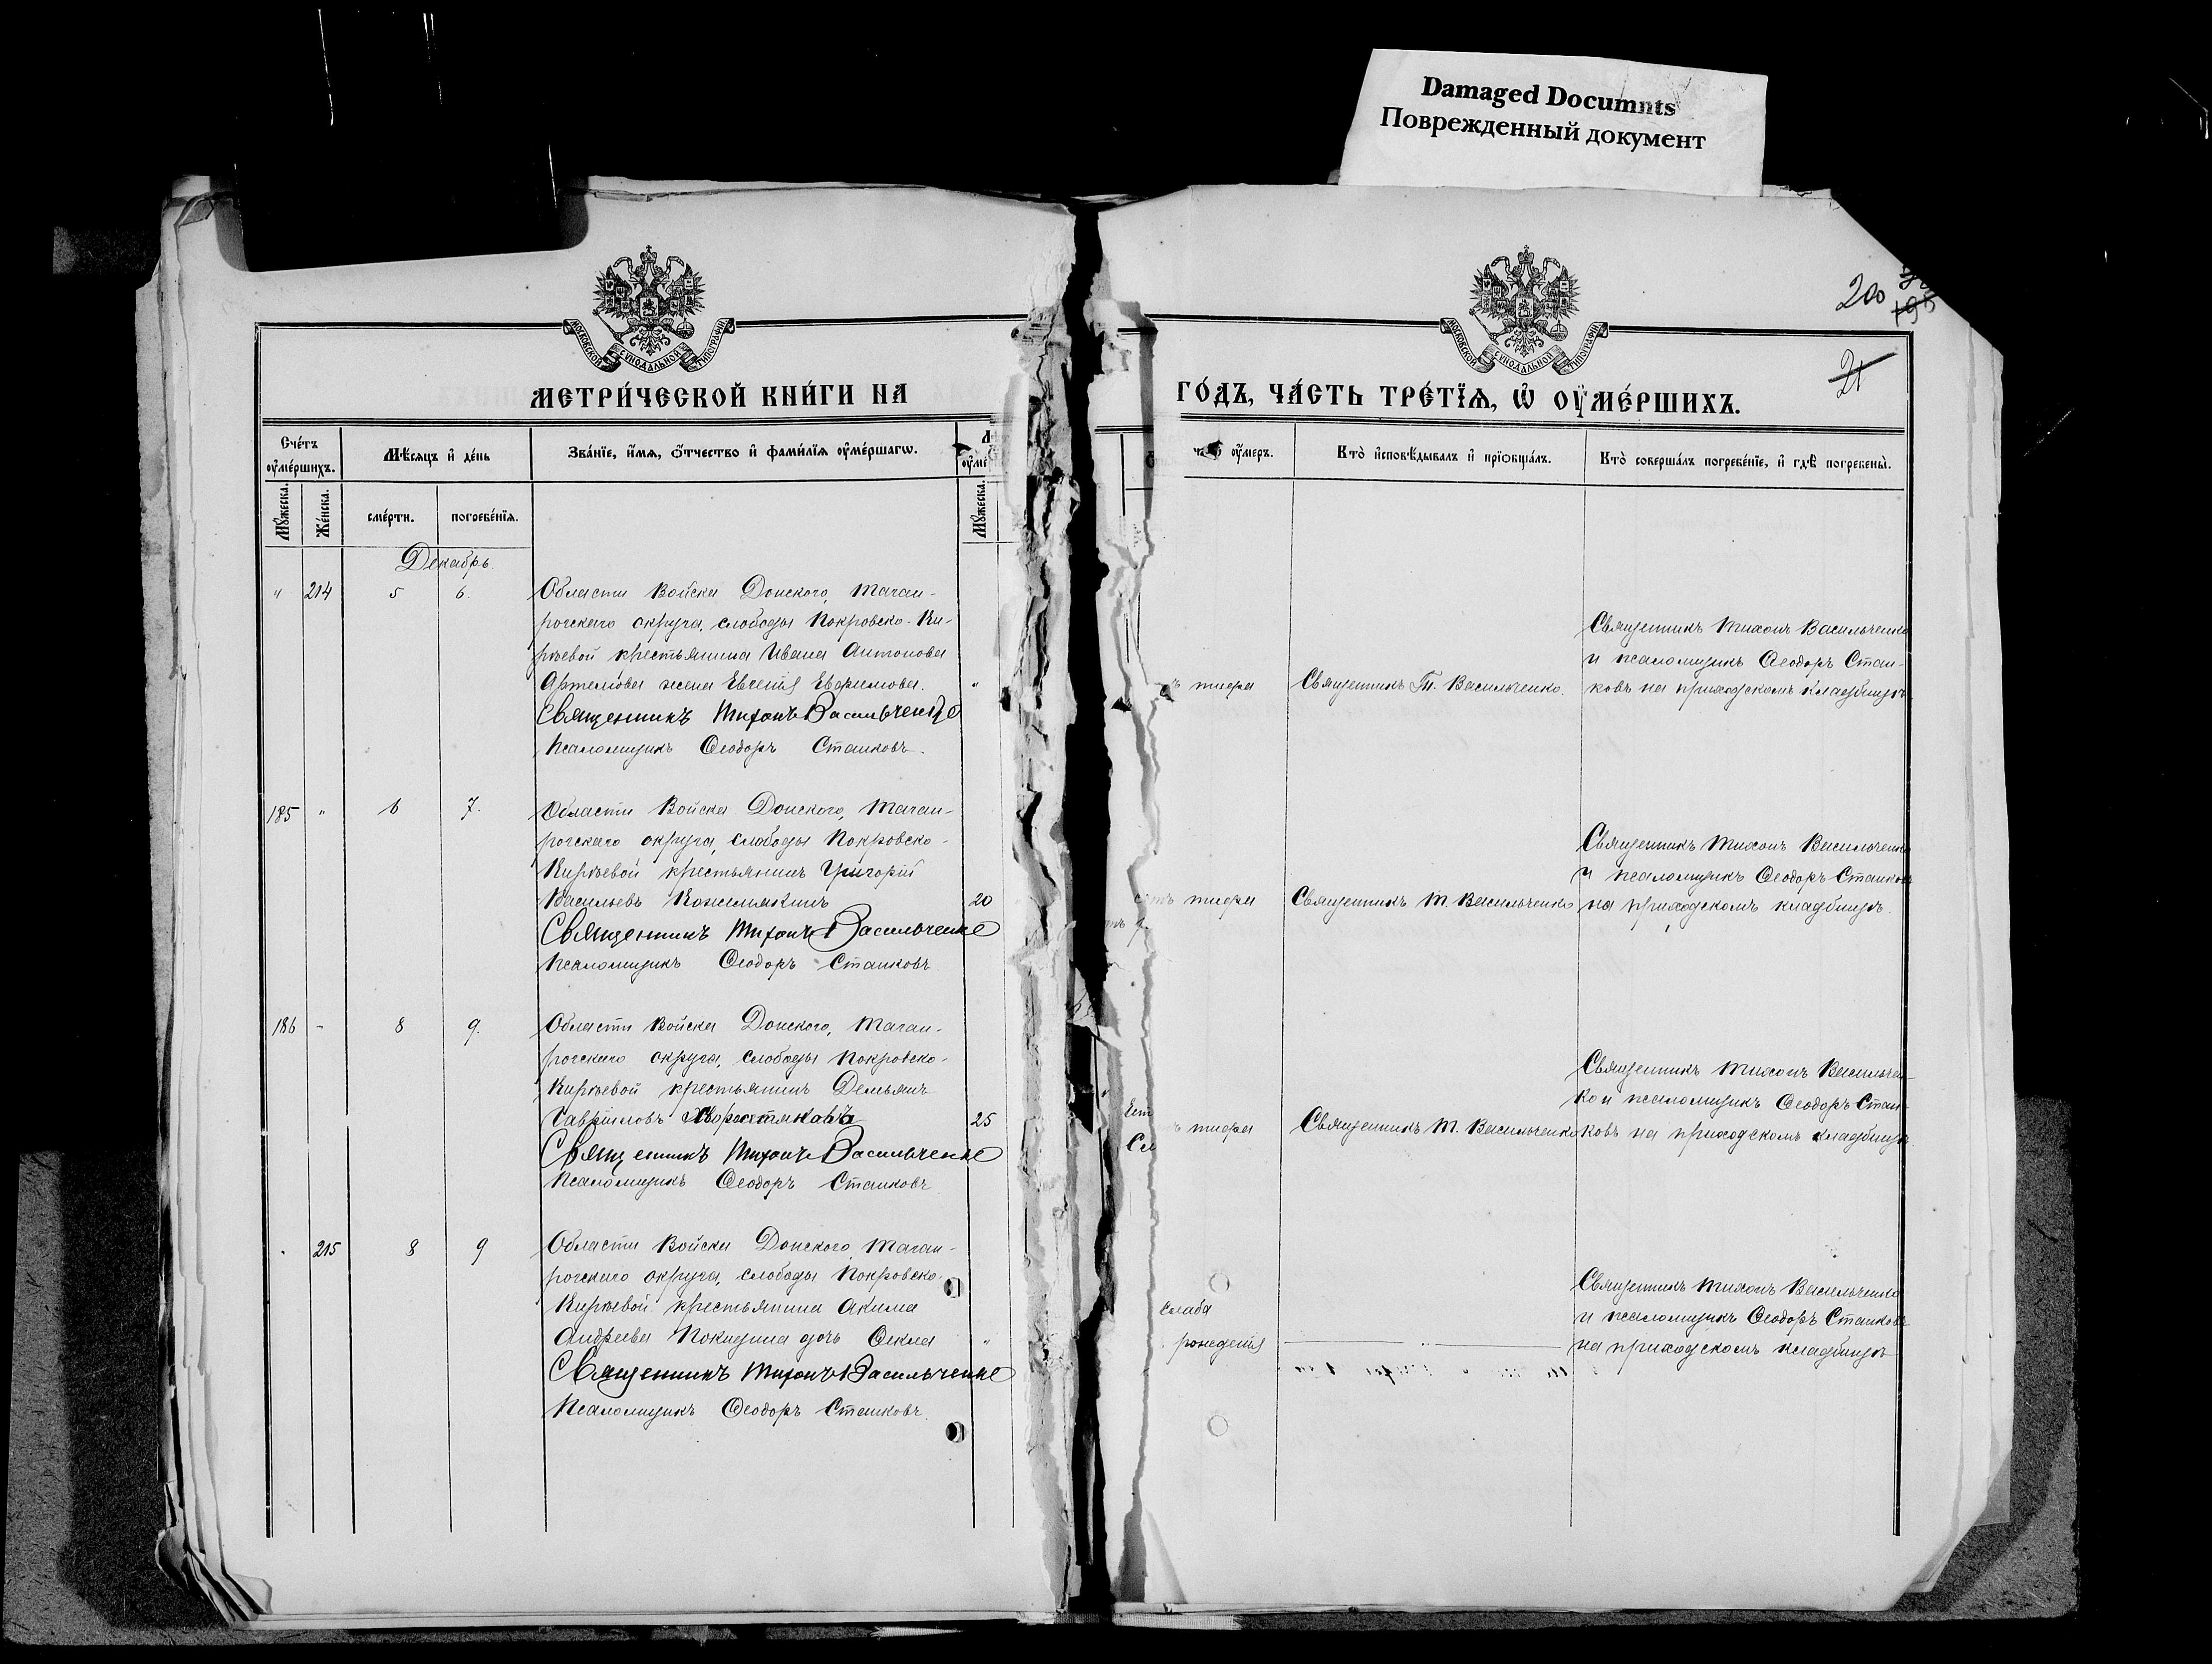 Damaged Documnts
Поврежденный документ
МОСКОВСКОЙ СУНОДАЛЬНОЙ ТИПОГРАФІИ
МОСКОВСКОЙ СУНОДАЛЬНОЙ ТИПОГРАФІИ
200
21
МЕТРИ́ЧЕСКОЙ КНИ́ГИ НА ГО́ДЪ, ЧА́СТЬ ТРЕ́ТЇѦ, Ѡ҆ ОУ҆МЕ́РШИХЪ.
Сче́тъ оу҆ме́ршихъ.
Мѣ́сяцъ и҆ де́нь
Зва́нїе, и҆́мѧ, ѻ҆́тчество и҆ фами́лїѧ оу҆ме́ршагѡ.
оу҆́меръ.
Кто̀ и҆сповѣ́дывалъ и҆ прїѡбща́лъ.
Кто̀ соверша́лъ погребе́нїе, и҆ гдѣ̀ погребены̀.
Мꙋ́жеска.
Же́нска.
сме́рти.
погребе́нїѧ.
Мꙋ́жеска.
Декабрь.
" 214 5 6. Области Войска Донского, Таган-
рогскаго округа, слободы Покровско-Ки-
рѣевой крестьянина Ивана Антонова
Артемова жена Евгенія Ефимова. "
Священникъ Тихонъ Васильченко
Псаломщикъ Ѳеодоръ Станковъ.
тифа
Священникъ Т. Васильченко.
Священникъ Тихонъ Васильченко
и псаломщикъ Ѳеодоръ Стан-
ковъ на приходскомъ кладбищѣ.
185 " 6 7. Области Войска Донского, Таган-
рогскаго округа, слободы Покровско-
Кирѣевой крестьянинъ Григорій
Васильевъ Кожемякинъ 20
Священникъ Тихонъ Васильченко
Псаломщикъ Ѳеодоръ Станковъ
тифа
Священникъ Т. Васильченко
Священникъ Тихонъ Васильченко
и псаломщикъ Ѳеодоръ Станковъ
на приходскомъ кладбищѣ.
186 - 8 9. Области Войска Донского, Таган-
рогскаго округа, слободы Покровско-
Кирѣевой крестьянинъ Демьянъ
Гавріиловъ 25
Священникъ Тихонъ Васильченко
Псаломщикъ Ѳеодоръ Станковъ
тифа
Священникъ Т. Васильченко
Священникъ Тихонъ Васильчен-
ко и псаломщикъ Ѳеодоръ Стан-
ковъ на приходскомъ кладбищѣ.
" 215 8 9 Области Войска Донского, Таган-
рогскаго округа, слободы Покровско-
Кирѣевой крестьянина Акима
Андреева дочь Ѳекла "
Священникъ Тихонъ Васильченко
Псаломщикъ Ѳеодоръ Станковъ.
слаба
рожденія
"
Священникъ Тихонъ Васильченко
и псаломщикъ Ѳеодоръ Станковъ
на приходскомъ кладбищѣ